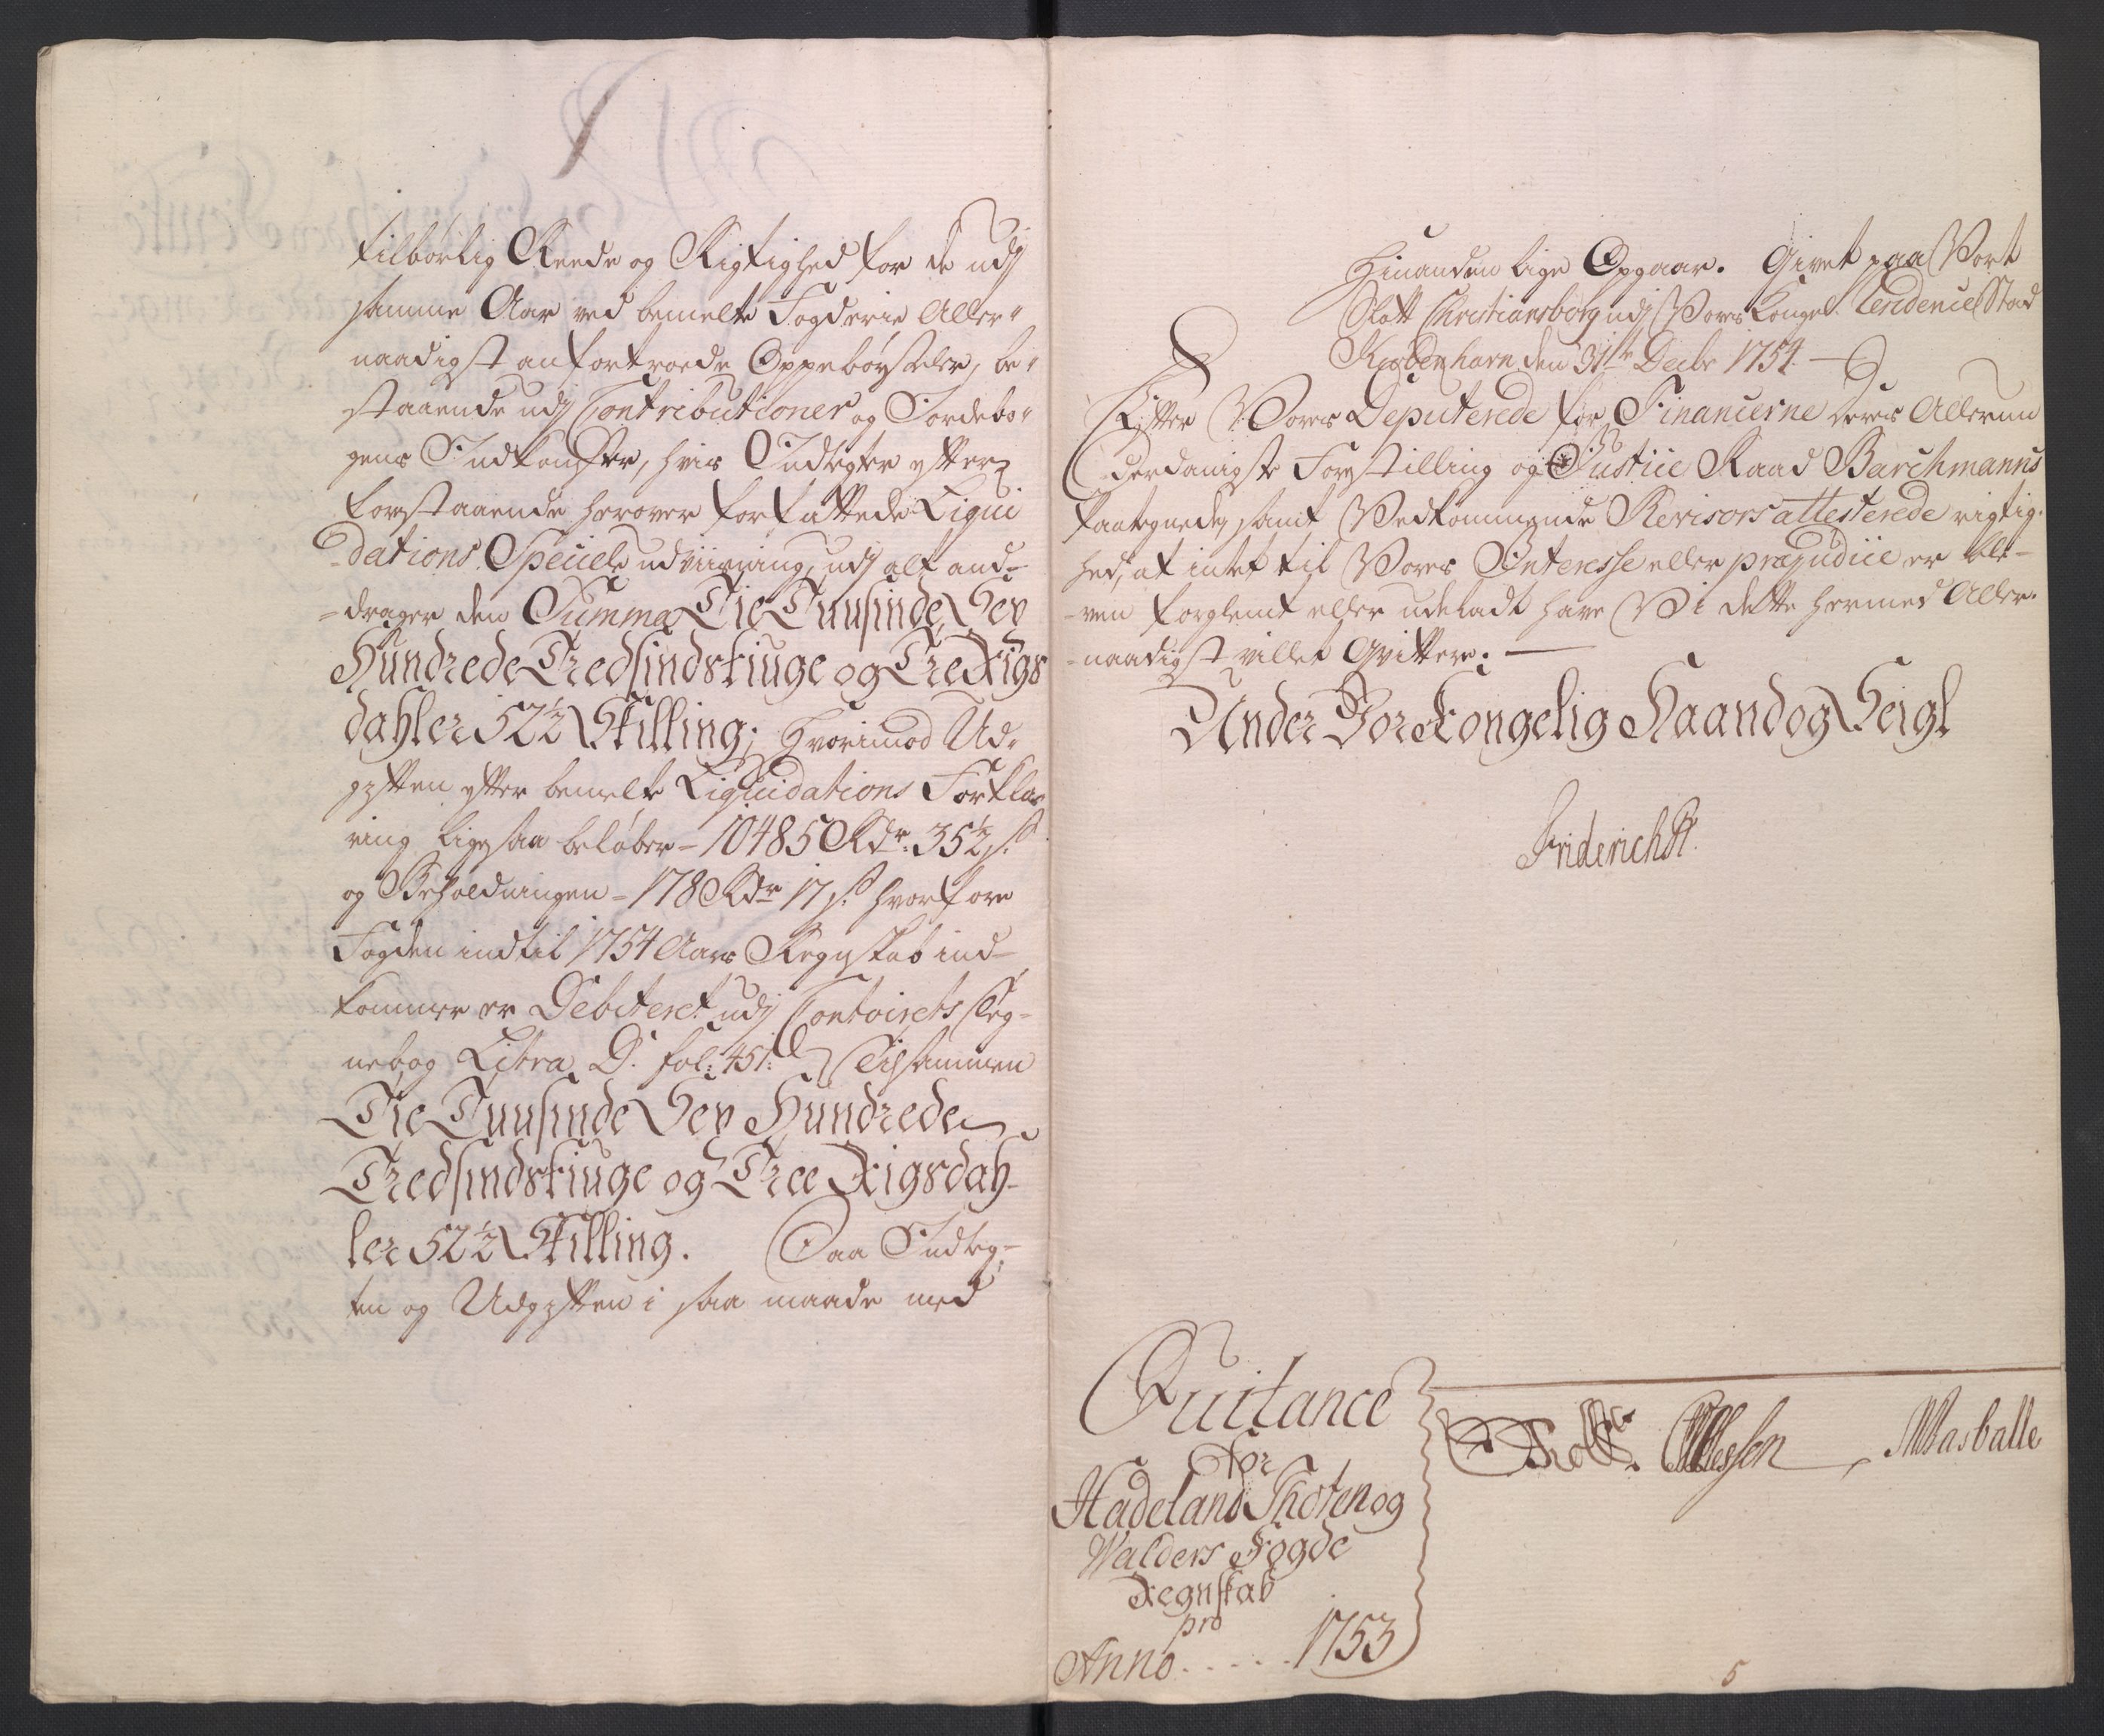 tilbørlig Reede og Rigtighed for de udj
samme Aar ved bemelte Fogderie Aller"
naadigst anfortroede Oppebørseler, be"
staaende udj Contributioner og Jordebo"
gens Indkomster, hvis Indtegter efter
forestaaende herover forfattede Liqui
-dations Speciele udviisning, udj alt and-
-drager den Summa Tie Tuusinde, Sev
Hundrede Tredsindstiuge og Tre Rigs
dahler 52½ Skilling; hvorimod Ud-
gifften efter bemelte Liquidations Forkla
ring ligesaa beløber - 10485 Rdr: 35½ s:
og Beholdningen - 178 Rdr 17 s: hvorfore
Fogden indtil 1754 Aars Regnskab ind-
kommer er Debiteret udj Contoirets Teg-
nebog Litra D. fol: 451: Tilsammen
Tie Tuusinde Sev Hundrede
Tredsindstiuge og Tree Rigsdah-
ler 52½ Skilling. Saa Indteg-
ten og Udgifften i saa maade med
hinanden lige Opgaar. Givet paa Vort
Slott Christiansborg udj Vores Kongel. Residence Stad
Kiøbenhavn den 31te Decbr 1754.
Efter Vores Deputerede for Financerne deres Allerun
derdanigste Forestilling og Justice Raad Barchmanns
paategnede, samt Vedkommende Revisors attesterede rigtig-
hed, at intet til Vores Interesse eller præjudice er ble-
-ven forglemt eller udeladt have Vi dette hermed Aller-
-naadigst villet Qvittere.
Under Vor Kongelig Haand og Seigl
Friderich R.
Quitance
for
Hadeland Thoten og
Walders Fogde
Regnskab
pro
Anno . . . . . 1753
5